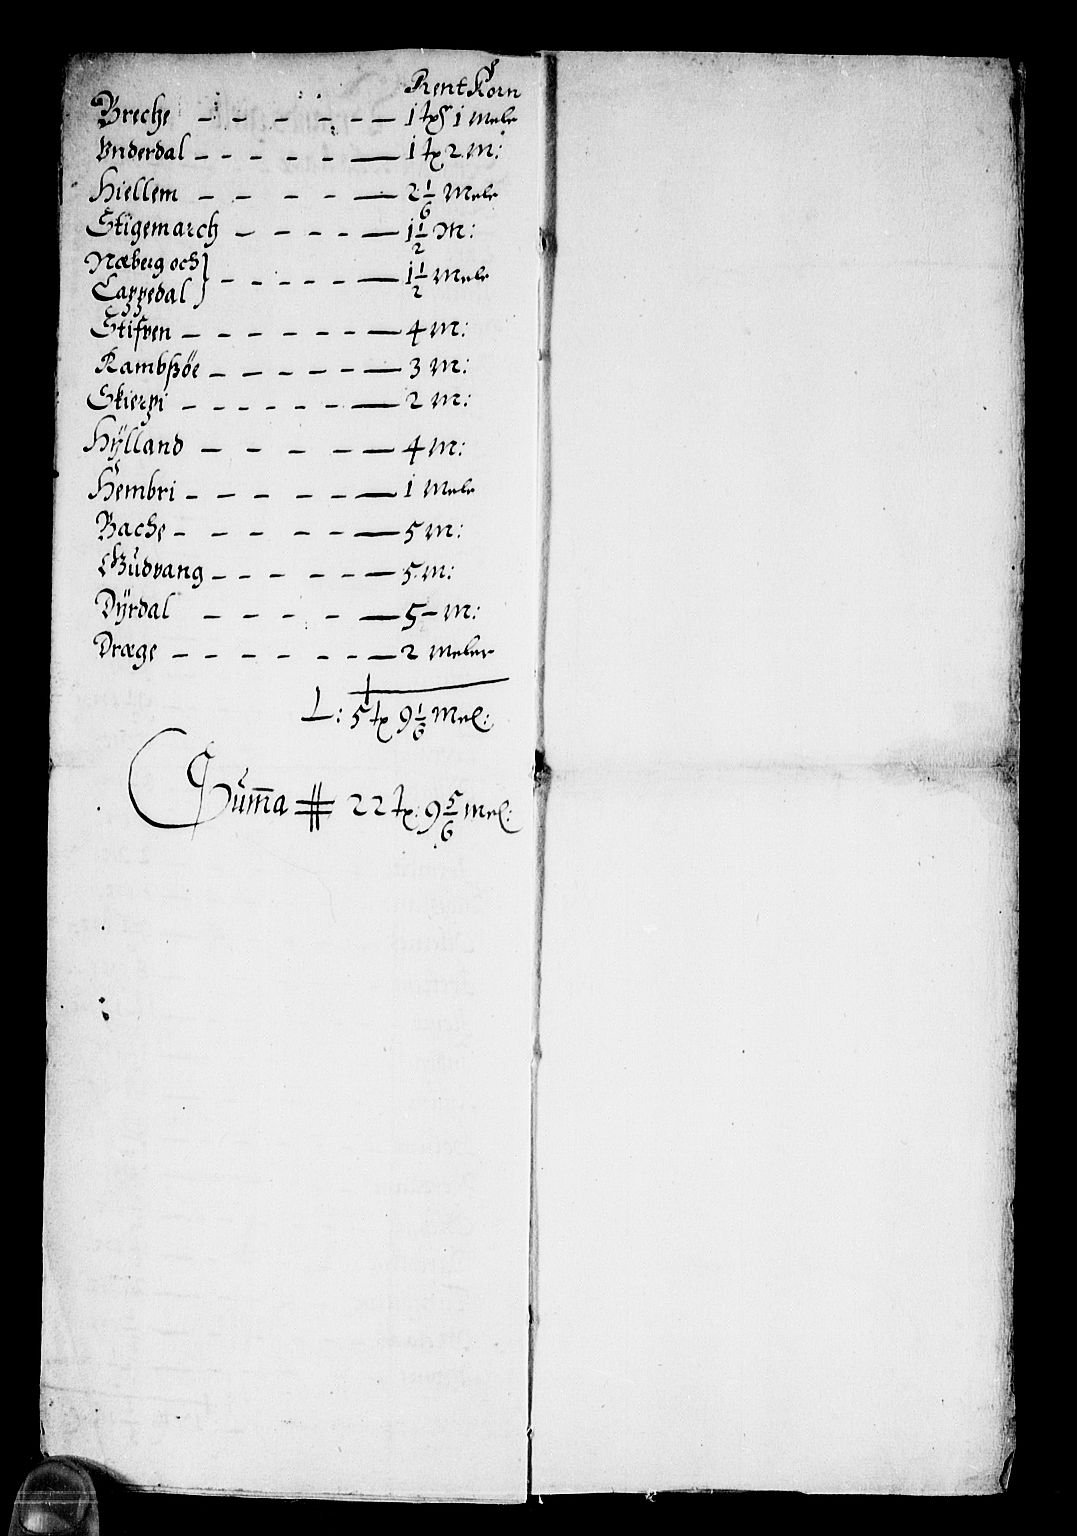 Rent Korn
Breche - - - - - - 1 tꝭ 1 Mele
Vnderdal - - - - - 1 tꝭ 2 M:
Hiellem - - - - - 2 1/6 Mele
Stigemarch - - - - - 1 1/2 M:
Næberg och }
Cappedal } - - - - - - 1 1/2 Mele
Stifven - - - - - - - 4 M:
Rambßøe - - - - - - 3 M:
Skierpi - - - - - - - 2 M:
Hÿlland - - - - - 4 M:
Hembri - - - - - - 1 Mele
Bache - - - - - - 5 M:
Gudvang - - - - - - 5 M:
Dÿrdal - - - - - 5 - M:
Dræge - - - - - - - 2 Meler
L: 5 tꝭ 9 1/6 Mel:
Sum̅a 22 tꝭ. 9 5/6 Mel: